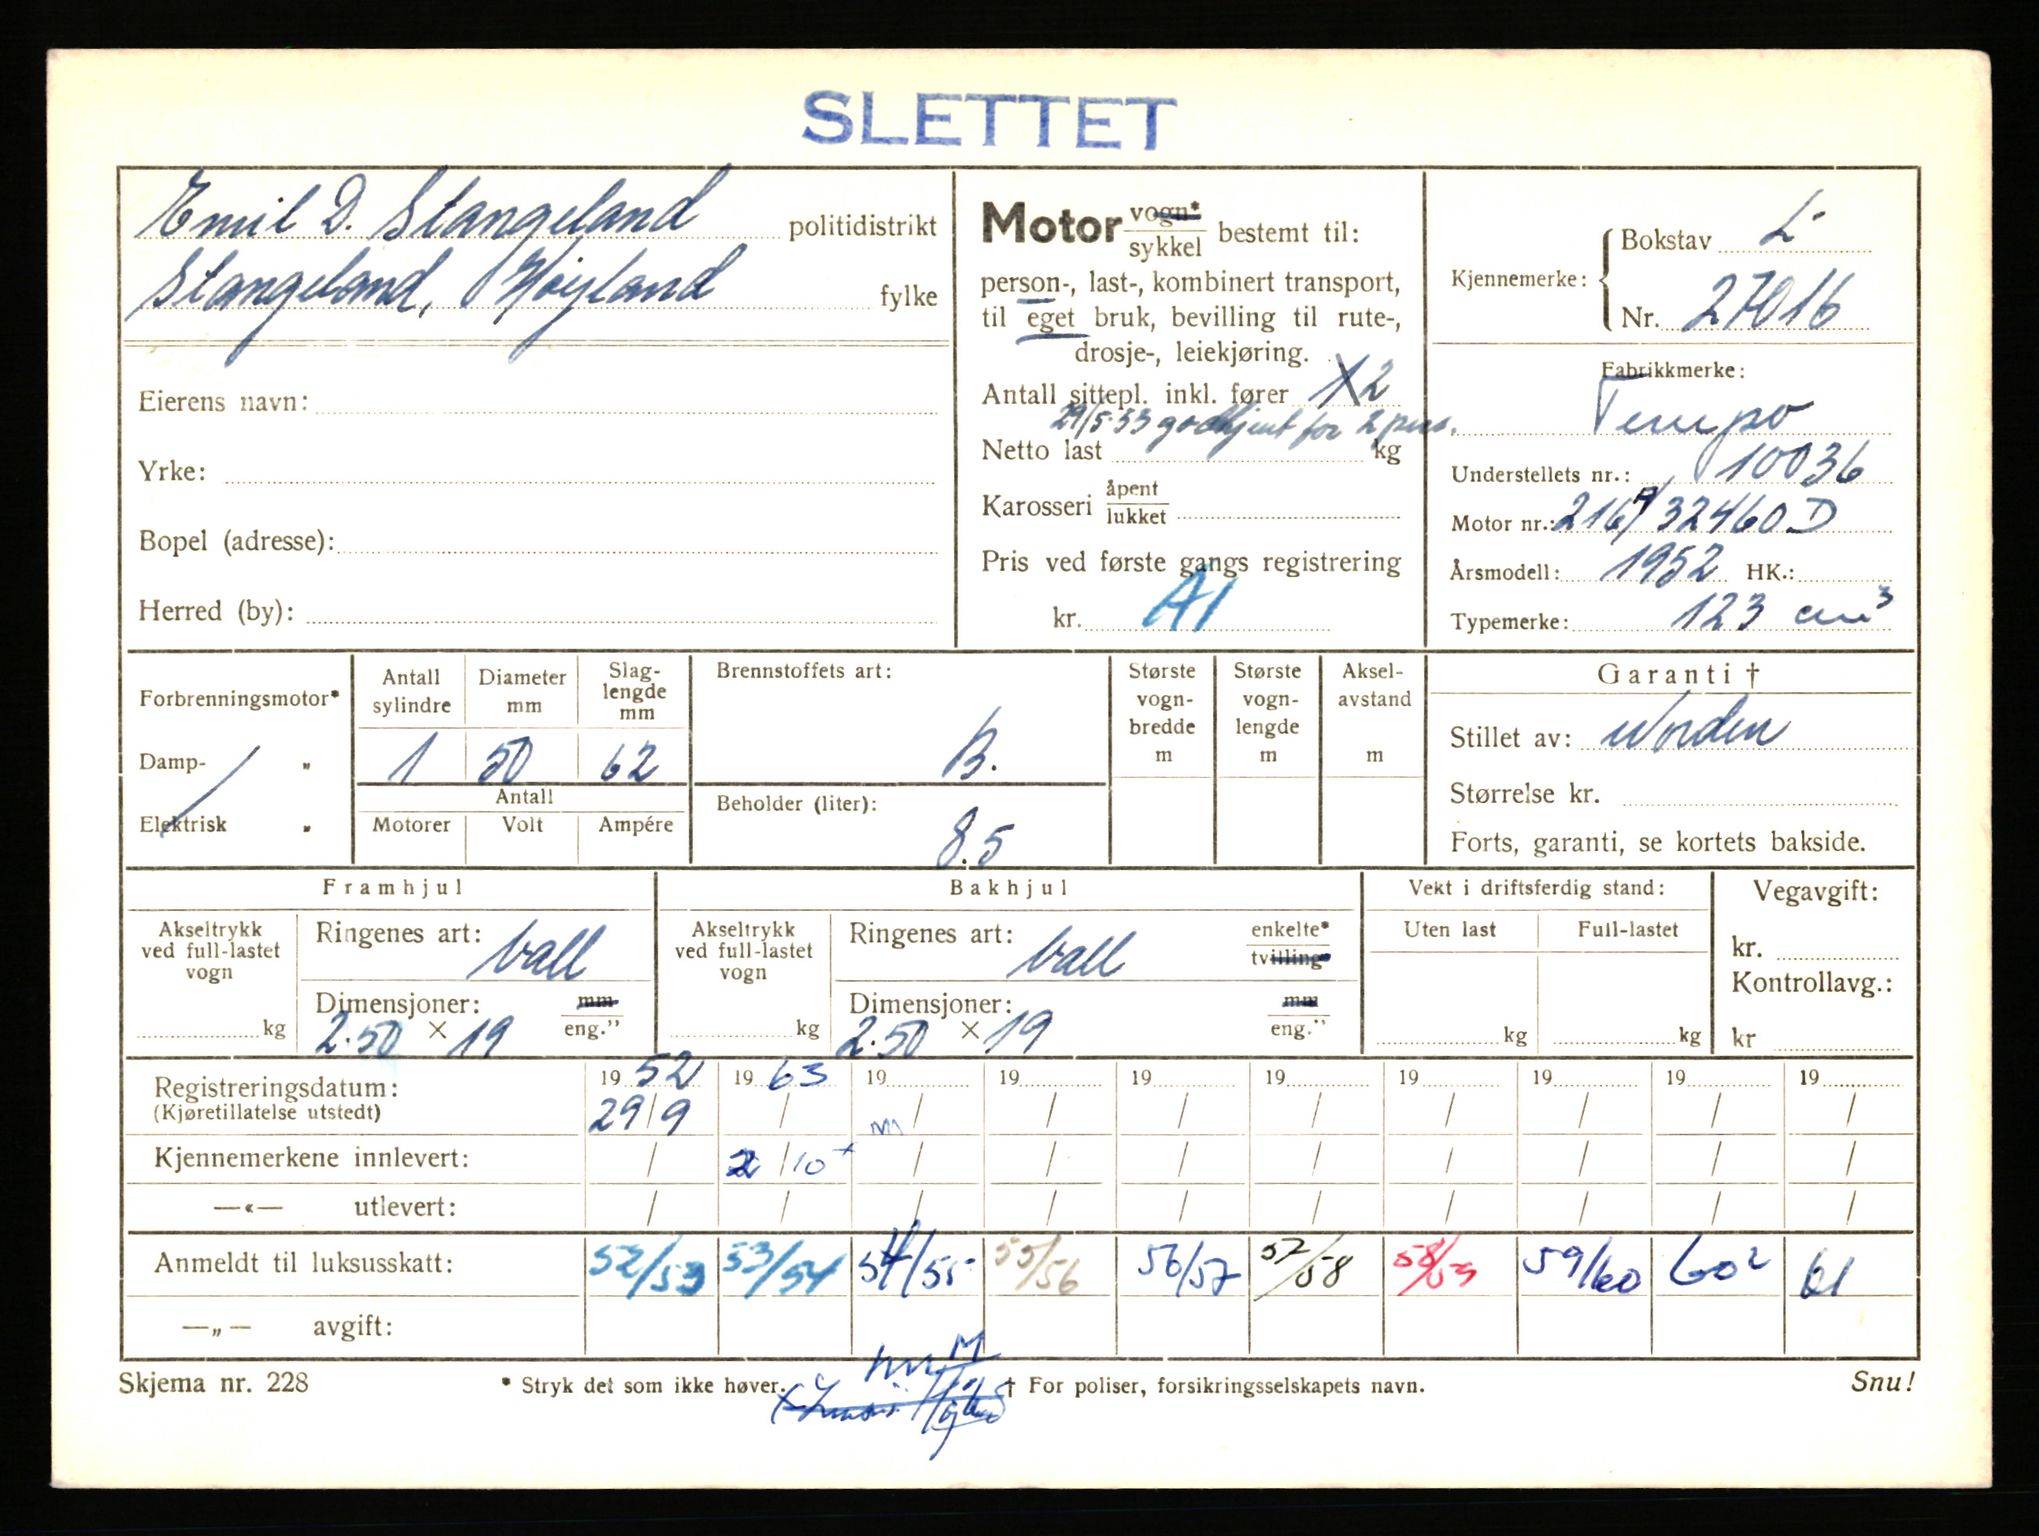 SLETTET
Emil D. Stangeland politidistrikt
Stangeland, Høyland fylke
Eierens navn:
Yrke:
Bopel (adresse):
Herred (by):
Motor vogn* / sykkel bestemt til:
person-, last-, kombinert transport,
til eget bruk, bevilling til rute-,
drosje-, leiekjøring.
Antall sittepl. inkl. fører 1 2
29/5-53 godkjent for 2 pers.
Netto last kg
Karosseri åpent / lukket
Pris ved første gangs registrering
kr. A1
Kjennemerke: Bokstav L
Nr. 27016
Fabrikkmerke:
Tempo
Understellets nr.: 10036
Motor nr.: 216/32460 D
Årsmodell: 1952 HK.:
Typemerke: 123 cm³
Forbrenningsmotor*
Damp- „
Elektrisk „
Antall sylindre 1
Diameter mm 50
Slag-lengde mm 62
Antall
Motorer Volt Ampére
Brennstoffets art: B.
Beholder (liter): 8.5
Største vogn-bredde m
Største vogn-lengde m
Aksel-avstand m
Garanti †
Stillet av: Norden
Størrelse kr.
Forts, garanti, se kortets bakside.
Framhjul
Akseltrykk ved full-lastet vogn kg
Ringenes art: ball
Dimensjoner: mm / eng.”
2.50 × 19
Bakhjul
Akseltrykk ved full-lastet vogn kg
Ringenes art: ball enkelte* / tvilling*
Dimensjoner: mm / eng.”
2.50 × 19
Vekt i driftsferdig stand:
Uten last Full-lastet
kg kg
Vegavgift:
kr.
Kontrollavg.:
kr
Registreringsdatum: 19 52 19 63 19 19 19 19 19 19 19 19
(Kjøretillatelse utstedt) 29/9 / / / / / / / / /
Kjennemerkene innlevert: / 2/10 / / / / / / / /
—«— utlevert: / / / / / / / / / /
Anmeldt til luksusskatt: 52/53 53/54 54/55 55/56 56/57 57/58 58/59 59/60 60² 61
—„— avgift:
Skjema nr. 228 * Stryk det som ikke høver. † For poliser, forsikringsselskapets navn. Snu!